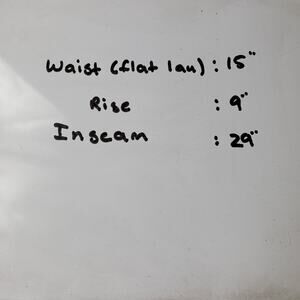 Waist (flat lau) : 15"
Rise : 9"
Inseam : 29"